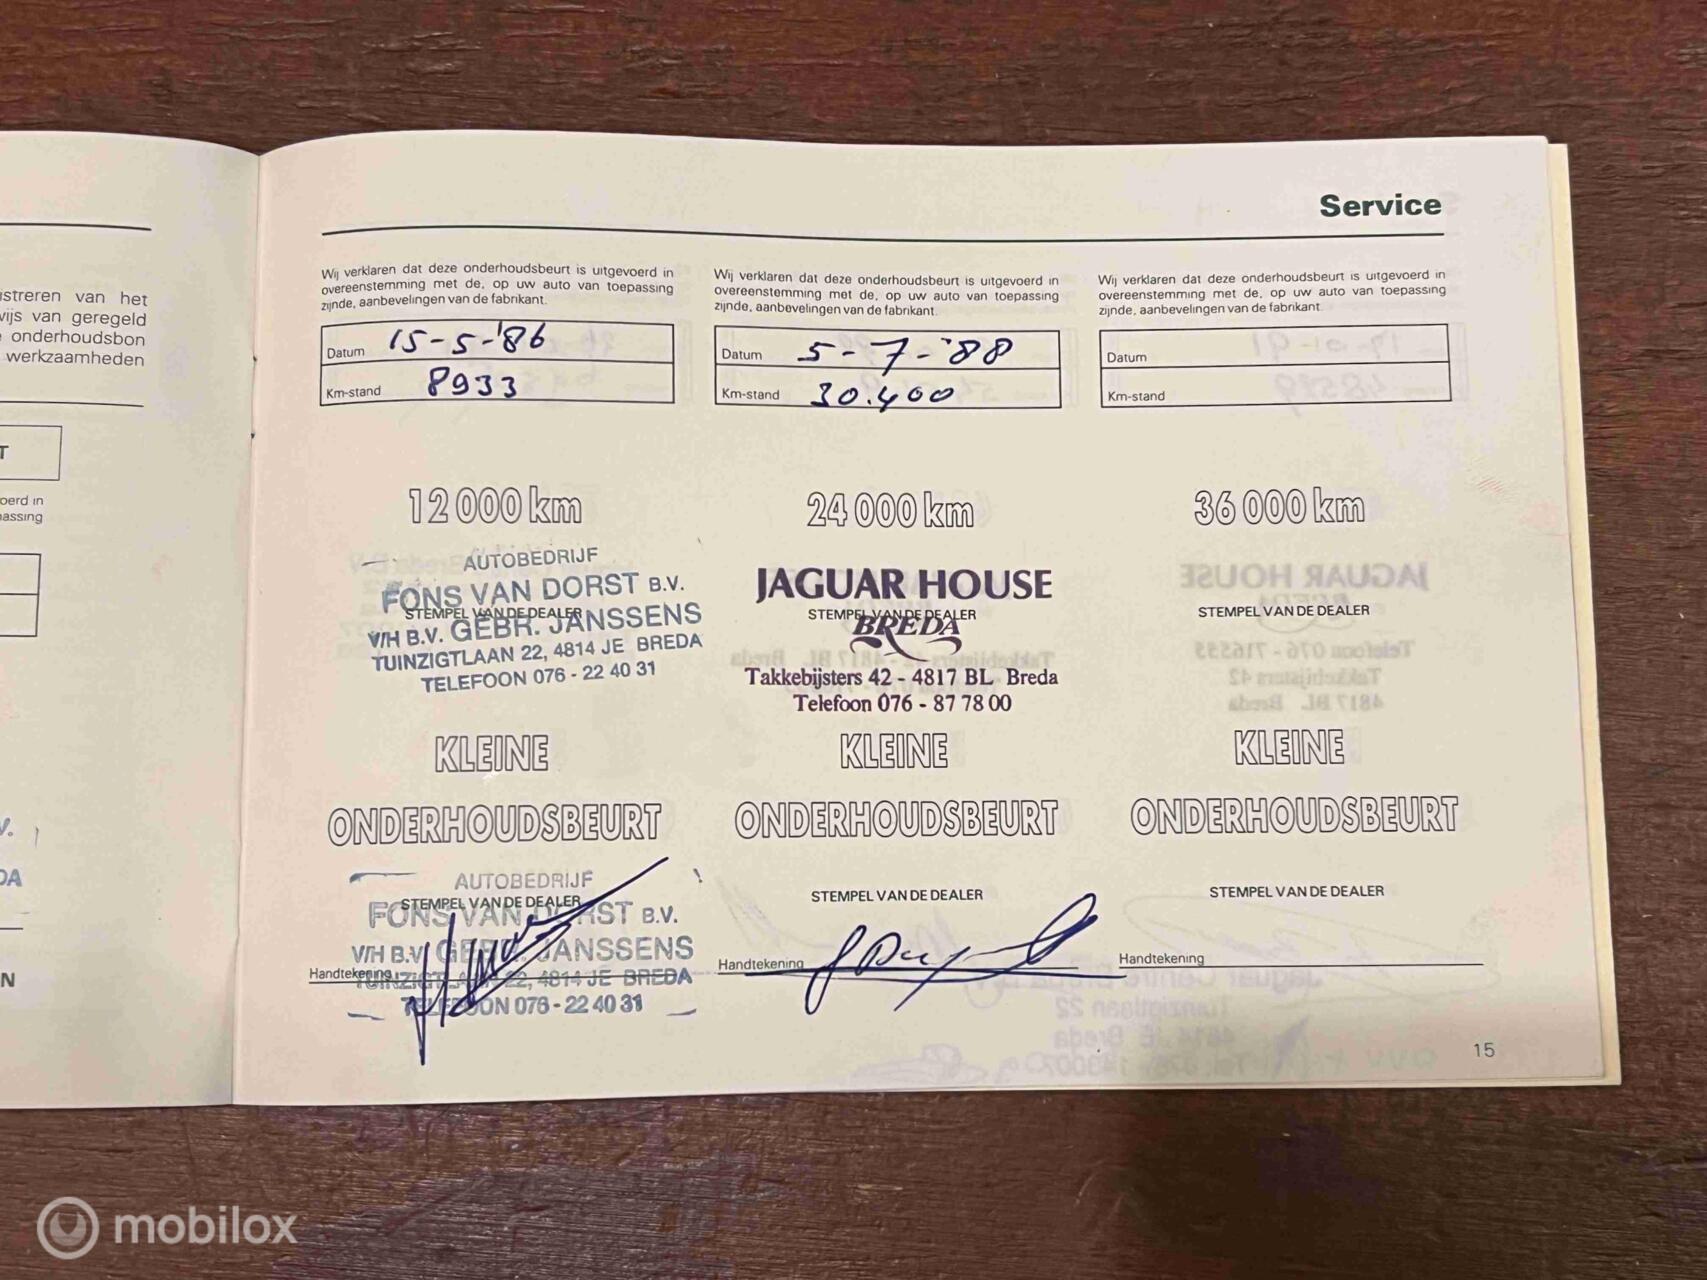 istreren van het
wijs van geregeld
onderhoudsbon
werkzaamheden
T
oerd in
passing
V.
DA
N
Service
Wij verklaren dat deze onderhoudsbeurt is uitgevoerd in
overeenstemming met de, op uw auto van toepassing
zijnde, aanbevelingen van de fabrikant.
Datum 15-5-'86
Km-stand 8933
12 000 km
AUTOBEDRIJF
FONS VAN DORST B.V.
STEMPEL VAN DE DEALER
V/H B.V. GEBR. JANSSENS
TUINZIGTLAAN 22, 4814 JE BREDA
TELEFOON 076 - 22 40 31
KLEINE
ONDERHOUDSBEURT
AUTOBEDRIJF
STEMPEL VAN DE DEALER
FONS VAN DORST B.V.
V/H B.V. GEBR. JANSSENS
Handtekening
TUINZIGTLAAN 22, 4814 JE BREDA
TELEFOON 076 - 22 40 31
Wij verklaren dat deze onderhoudsbeurt is uitgevoerd in
overeenstemming met de, op uw auto van toepassing
zijnde, aanbevelingen van de fabrikant.
Datum 5-7-'88
Km-stand 30.400
24 000 km
JAGUAR HOUSE
STEMPEL VAN DE DEALER
BREDA
Takkebijsters 42 - 4817 BL Breda
Telefoon 076 - 87 78 00
KLEINE
ONDERHOUDSBEURT
STEMPEL VAN DE DEALER
Handtekening
Wij verklaren dat deze onderhoudsbeurt is uitgevoerd in
overeenstemming met de, op uw auto van toepassing
zijnde, aanbevelingen van de fabrikant.
Datum
Km-stand
36 000 km
STEMPEL VAN DE DEALER
KLEINE
ONDERHOUDSBEURT
STEMPEL VAN DE DEALER
Handtekening
15
mobilox